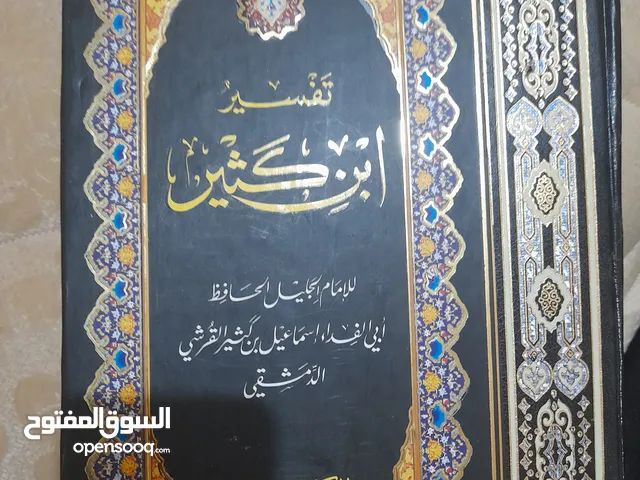 تَفْسِيرُ
ابْن كَثِير
للإمام الجليل الحافظ
أبي الفداء إسماعيل بن كثير القرشي
الدمشقي
السوق المفتوح
opensooq.com